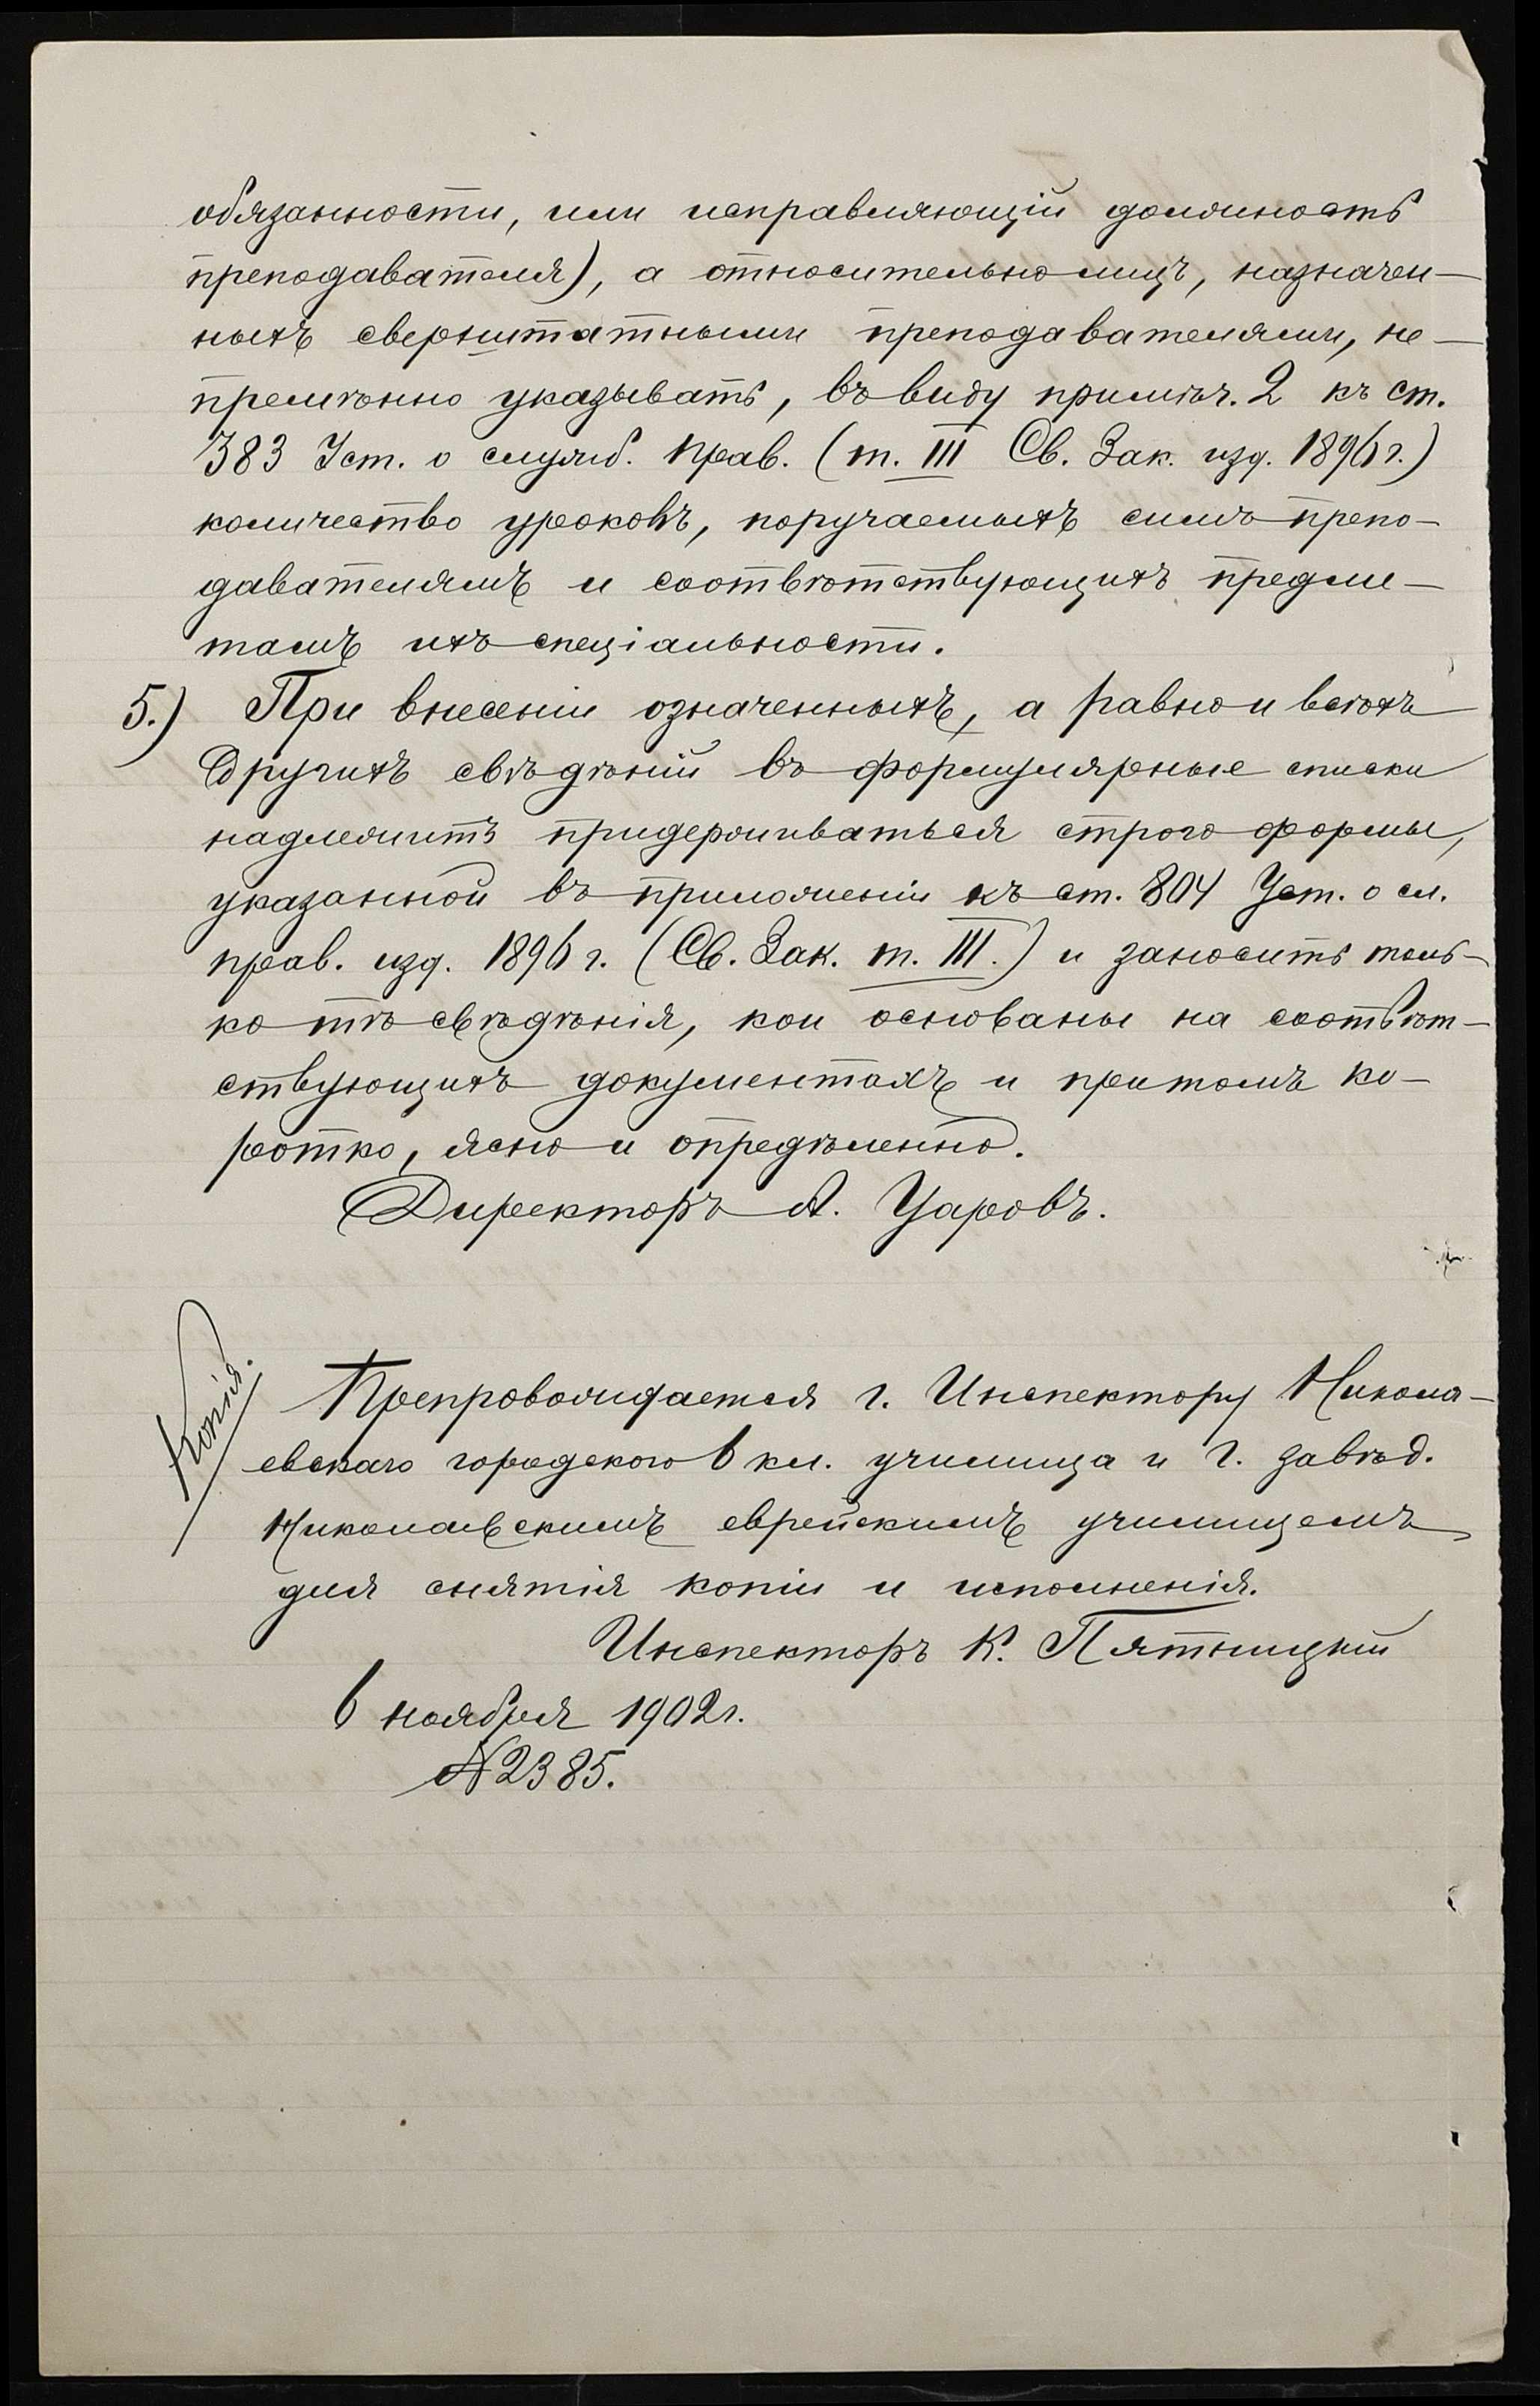 обязанности, или исправляющій должность
преподавателя), а относительно лицъ, назначен-
ныхъ сверхштатными преподавателями, не-
премѣнно указывать, въ виду примѣч. 2 къ ст.
383 Уст. о служб. прав. (т. III Св. Зак. изд. 1896 г.)
количество уроковъ, поручаемыхъ симъ препо-
давателямъ и соотвѣтствующихъ предме-
тамъ ихъ спеціальности.
5.) При внесеніи означенныхъ, а равно и всѣхъ
другихъ свѣдѣній въ формулярные списки
надлежитъ придерживаться строго формы,
указанной въ приложеніи къ ст. 804 Уст. о сл.
прав. изд. 1896 г. (Св. Зак. т. III.) и заносить толь-
ко тѣ свѣдѣнія, кои основаны на соотвѣт-
ствующихъ документахъ и притомъ ко-
ротко, ясно и опредѣленно.
Директоръ А. Уаровъ.
Копія.
Препровождается г. Инспектору Никола-
евскаго городского 6 кл. училища и г. завѣд.
Николаевскимъ еврейскимъ училищемъ
для снятія копіи и исполненія.
Инспекторъ К. Пятницкій
6 ноября 1902 г.
№ 2385.